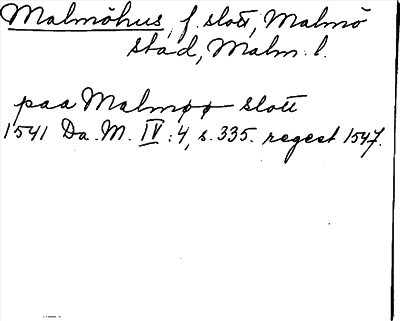 Malmöhus, f. slott, Malmö
stad, Malm. l.
paa Malmøø slott
1541 Da. M. IV : 4, s. 335. regest 1547.